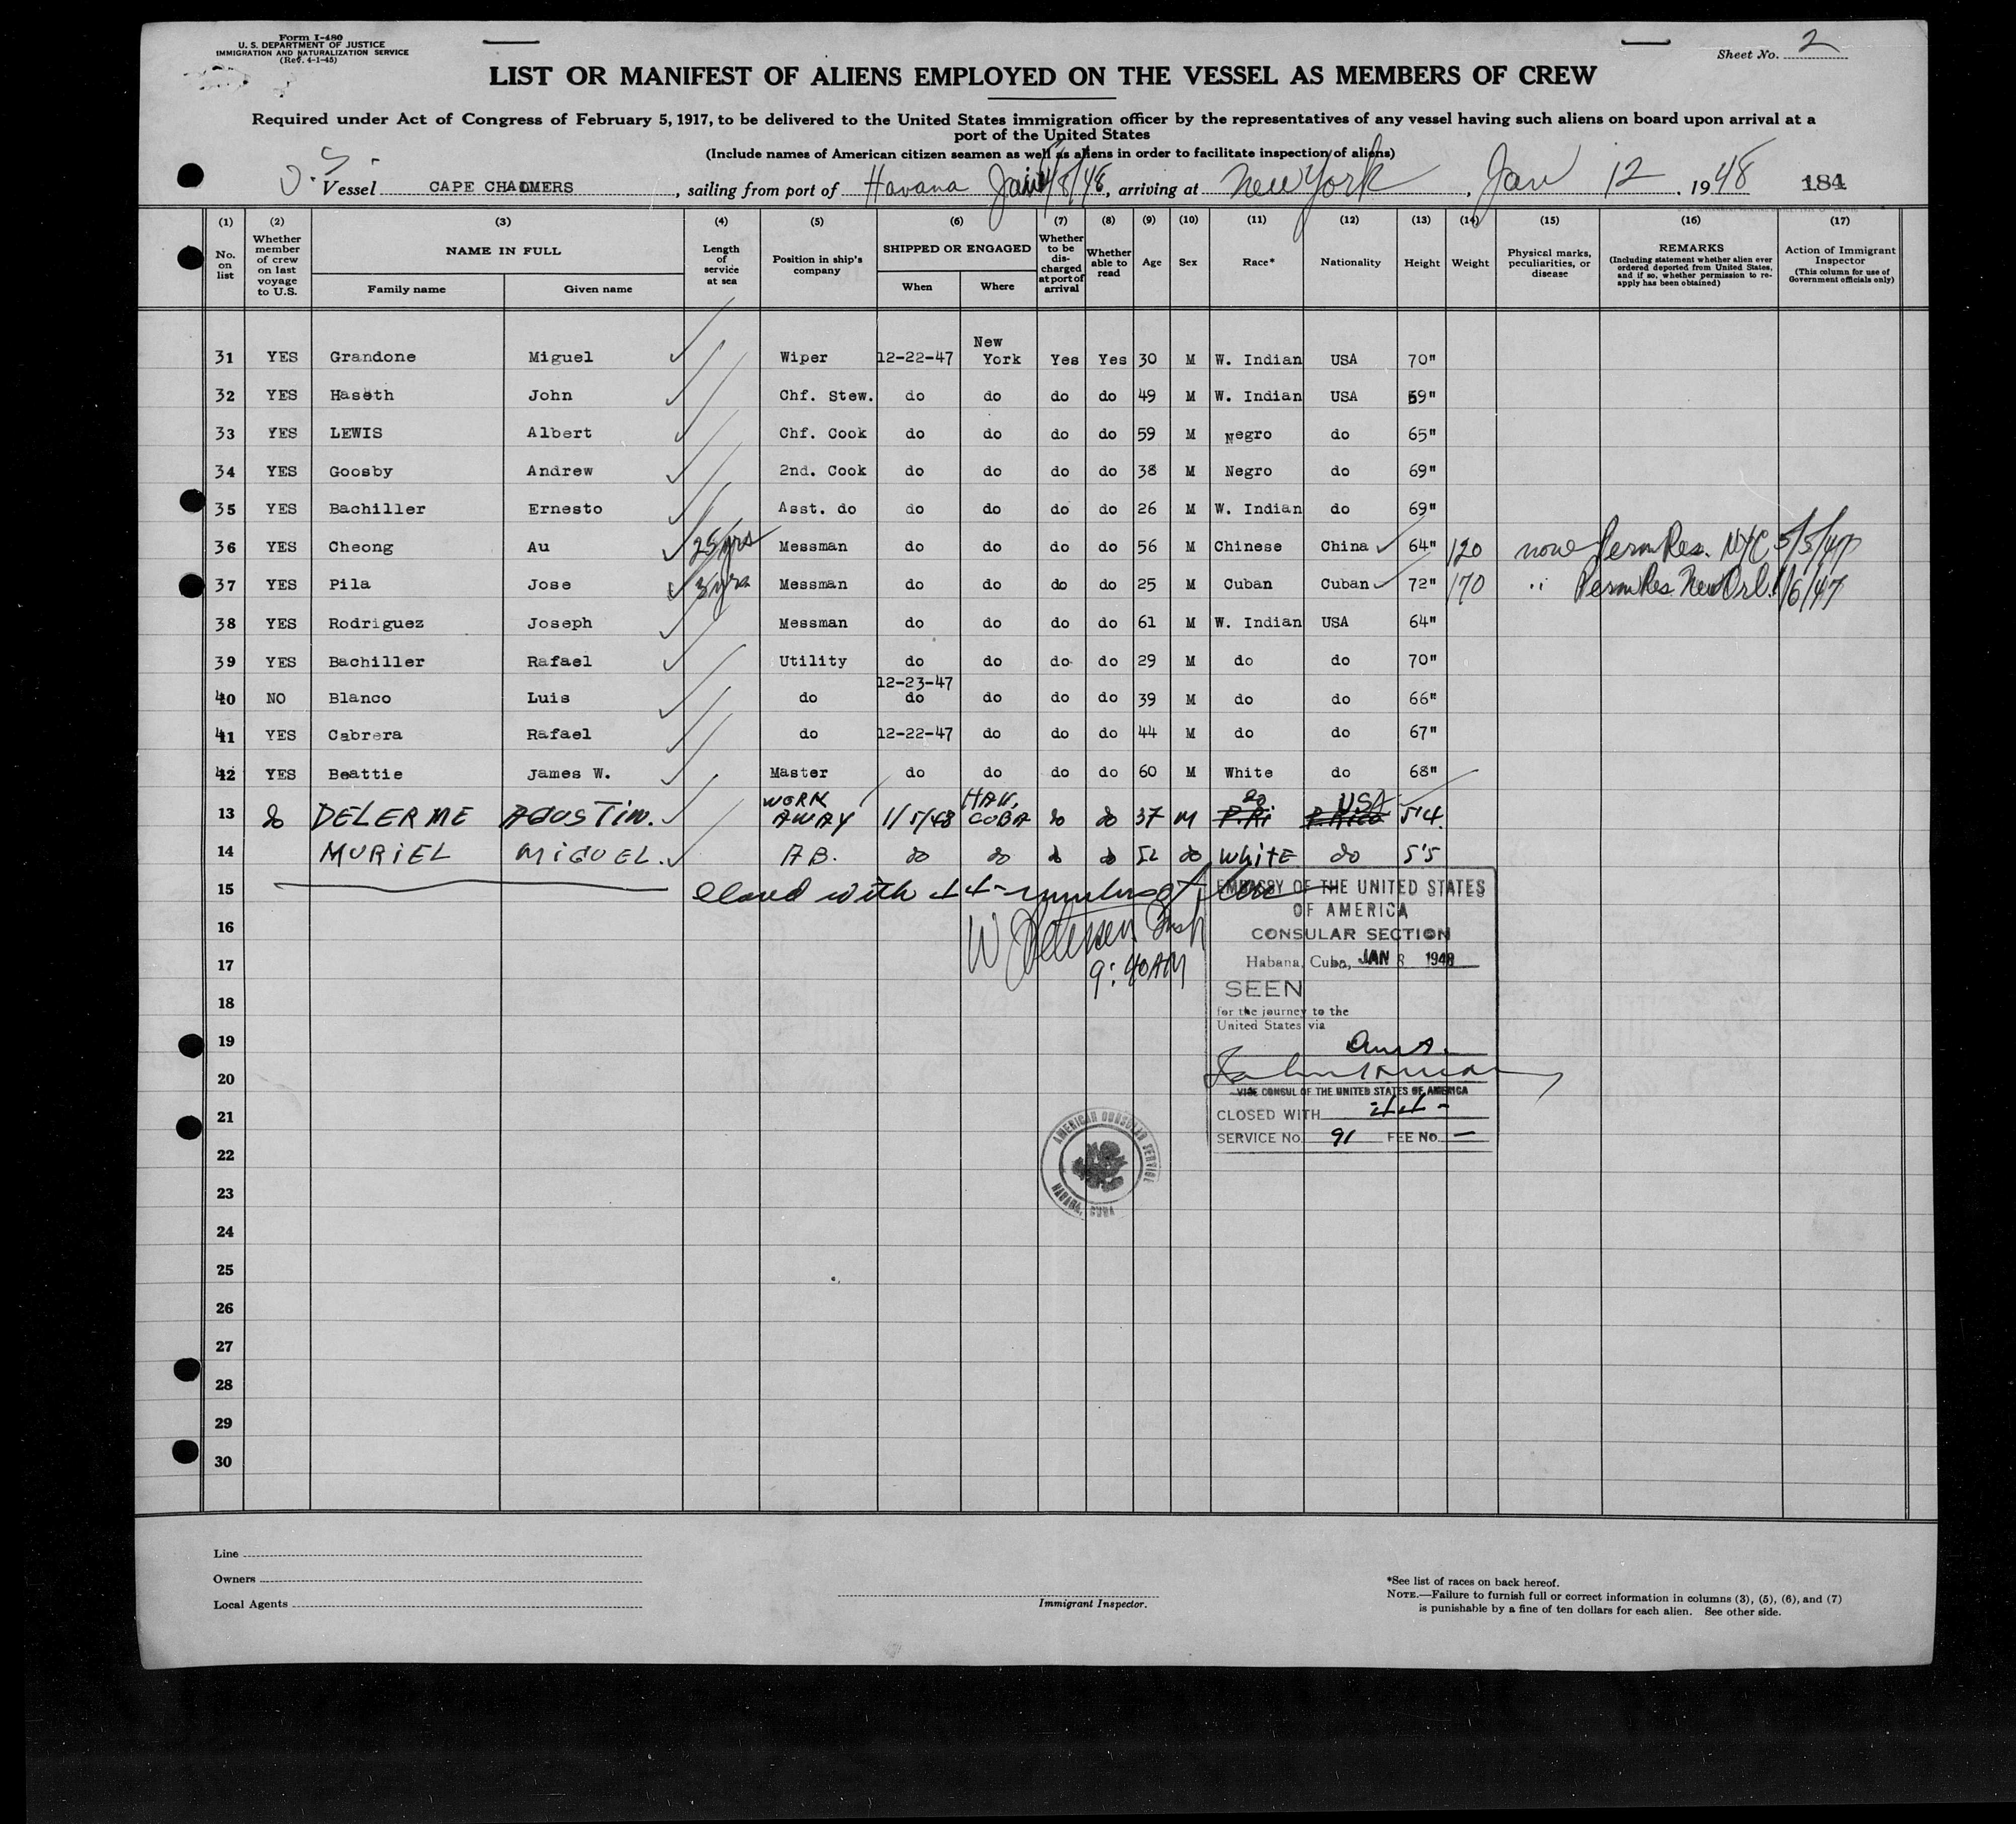 Form I-480
U. S. DEPARTMENT OF JUSTICE
IMMIGRATION AND NATURALIZATION SERVICE
(Rev. 4-1-45)
Sheet No. 2
LIST OR MANIFEST OF ALIENS EMPLOYED ON THE VESSEL AS MEMBERS OF CREW
Required under Act of Congress of February 5, 1917, to be delivered to the United States immigration officer by the representatives of any vessel having such aliens on board upon arrival at a
port of the United States
(Include names of American citizen seamen as well as aliens in order to facilitate inspection of aliens)
Vessel CAPE CHALMERS, sailing from port of Havana Jan 8/48, arriving at New York, Jan 12, 1948 184
(1) (2) (3) (4) (5) (6) (7) (8) (9) (10) (11) (12) (13) (14) (15) (16) (17)
No. on list
Whether member of crew on last voyage to U.S.
NAME IN FULL
Family name Given name
Length of service at sea
Position in ship's company
SHIPPED OR ENGAGED
When Where
Whether to be discharged at port of arrival
Whether able to read
Age
Sex
Race*
Nationality
Height
Weight
Physical marks, peculiarities, or disease
REMARKS
(Including statement whether alien ever ordered deported from United States, and if so, whether permission to reapply has been obtained)
Action of Immigrant Inspector
(This column for use of Government officials only)
31 YES Grandone Miguel Wiper 12-22-47 New York Yes Yes 30 M W. Indian USA 70"
32 YES Haseth John Chf. Stew. do do do do 49 M W. Indian USA 59"
33 YES LEWIS Albert Chf. Cook do do do do 59 M Negro do 65"
34 YES Goosby Andrew 2nd. Cook do do do do 38 M Negro do 69"
35 YES Bachiller Ernesto Asst. do do do do do 26 M W. Indian do 69"
36 YES Cheong Au 25 yrs Messman do do do do 56 M Chinese China 64" 120 none Perm Res. NYC 5/5/47
37 YES Pila Jose 3 yrs Messman do do do do 25 M Cuban Cuban 72" 170 " Perm Res. New Orl. 1/6/47
38 YES Rodriguez Joseph Messman do do do do 61 M W. Indian USA 64"
39 YES Bachiller Rafael Utility do do do do 29 M do do 70"
40 NO Blanco Luis do 12-23-47 do do do do 39 M do do 66"
41 YES Cabrera Rafael do 12-22-47 do do do 44 M do do 67"
42 YES Beattie James W. Master do do do do 60 M White do 68"
13 do DELERME AGUSTIN. WORK AWAY 1/5/48 HAV, CUBA do do 37 M do P.Ri USA P.Rico 5'4.
14 MURIEL MIGUEL. A B. do do do do 52 do WHITE do 5'5
15 closed with 44 - number
16
17
9:40 AM
18
19
20
21
22
23
24
25
26
27
28
29
30
EMBASSY OF THE UNITED STATES
OF AMERICA
CONSULAR SECTION
Habana, Cuba, JAN 8 1948
SEEN
for the journey to the
United States via
VICE CONSUL OF THE UNITED STATES OF AMERICA
CLOSED WITH 44 -
SERVICE NO. 91 FEE NO. —
AMERICAN CONSULAR SERVICE
HABANA, CUBA
Line
Owners
Local Agents
Immigrant Inspector.
*See list of races on back hereof.
NOTE.—Failure to furnish full or correct information in columns (3), (5), (6), and (7)
is punishable by a fine of ten dollars for each alien. See other side.